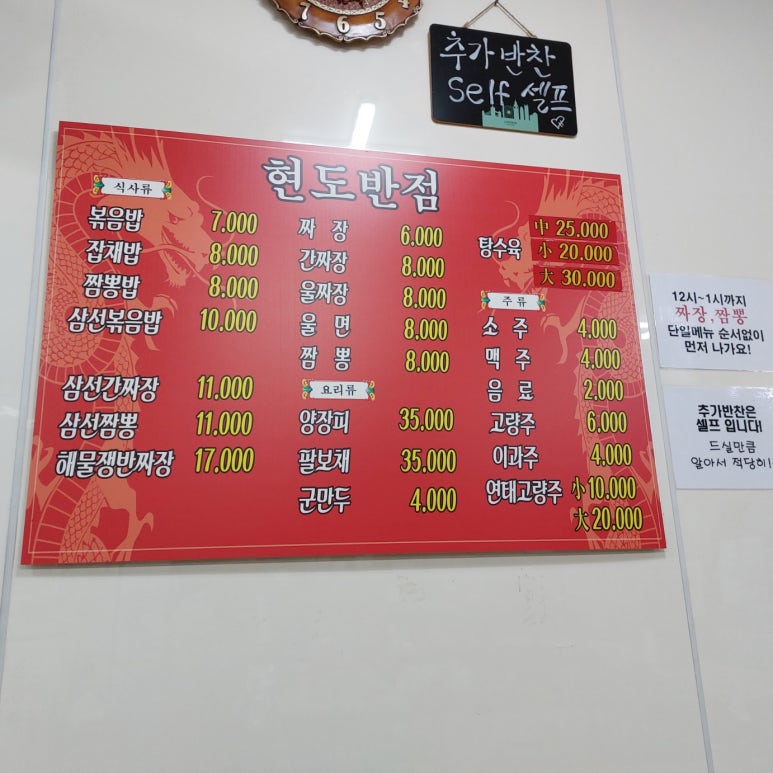 7 6 5 4
추가반찬
Self 셀프
현도반점
식사류
볶음밥 7.000
잡채밥 8.000
짬뽕밥 8.000
삼선볶음밥 10.000
삼선간짜장 11.000
삼선짬뽕 11.000
해물쟁반짜장 17.000
짜 장 6.000
간짜장 8.000
울짜장 8.000
울 면 8.000
짬 뽕 8.000
요리류
양장피 35.000
팔보채 35.000
군만두 4.000
탕수육 中 25.000
小 20.000
大 30.000
주 류
소 주 4.000
맥 주 4.000
음 료 2.000
고량주 6.000
이과주 4.000
연태고량주 小 10.000
大 20.000
12시~1시까지
짜장,짬뽕
단일메뉴 순서없이
먼저 나가요!
추가반찬은
셀프 입니다!
드실만큼
알아서 적당히